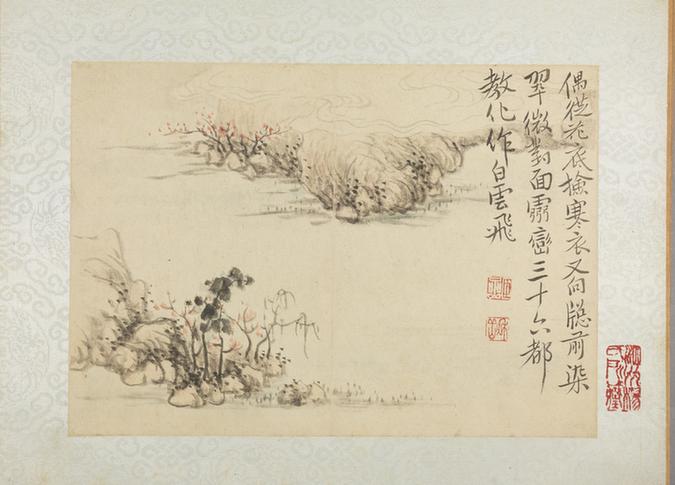 偶從花底撿寒衣又向牕前染
翠微對面霜巒三十六都
教化作白雲飛